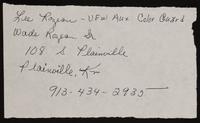 Lee Rogean - VFW Aux Color Guard
Wade Rogan Sr
108 S Plainville
Plainville, Kn
913-434-2935